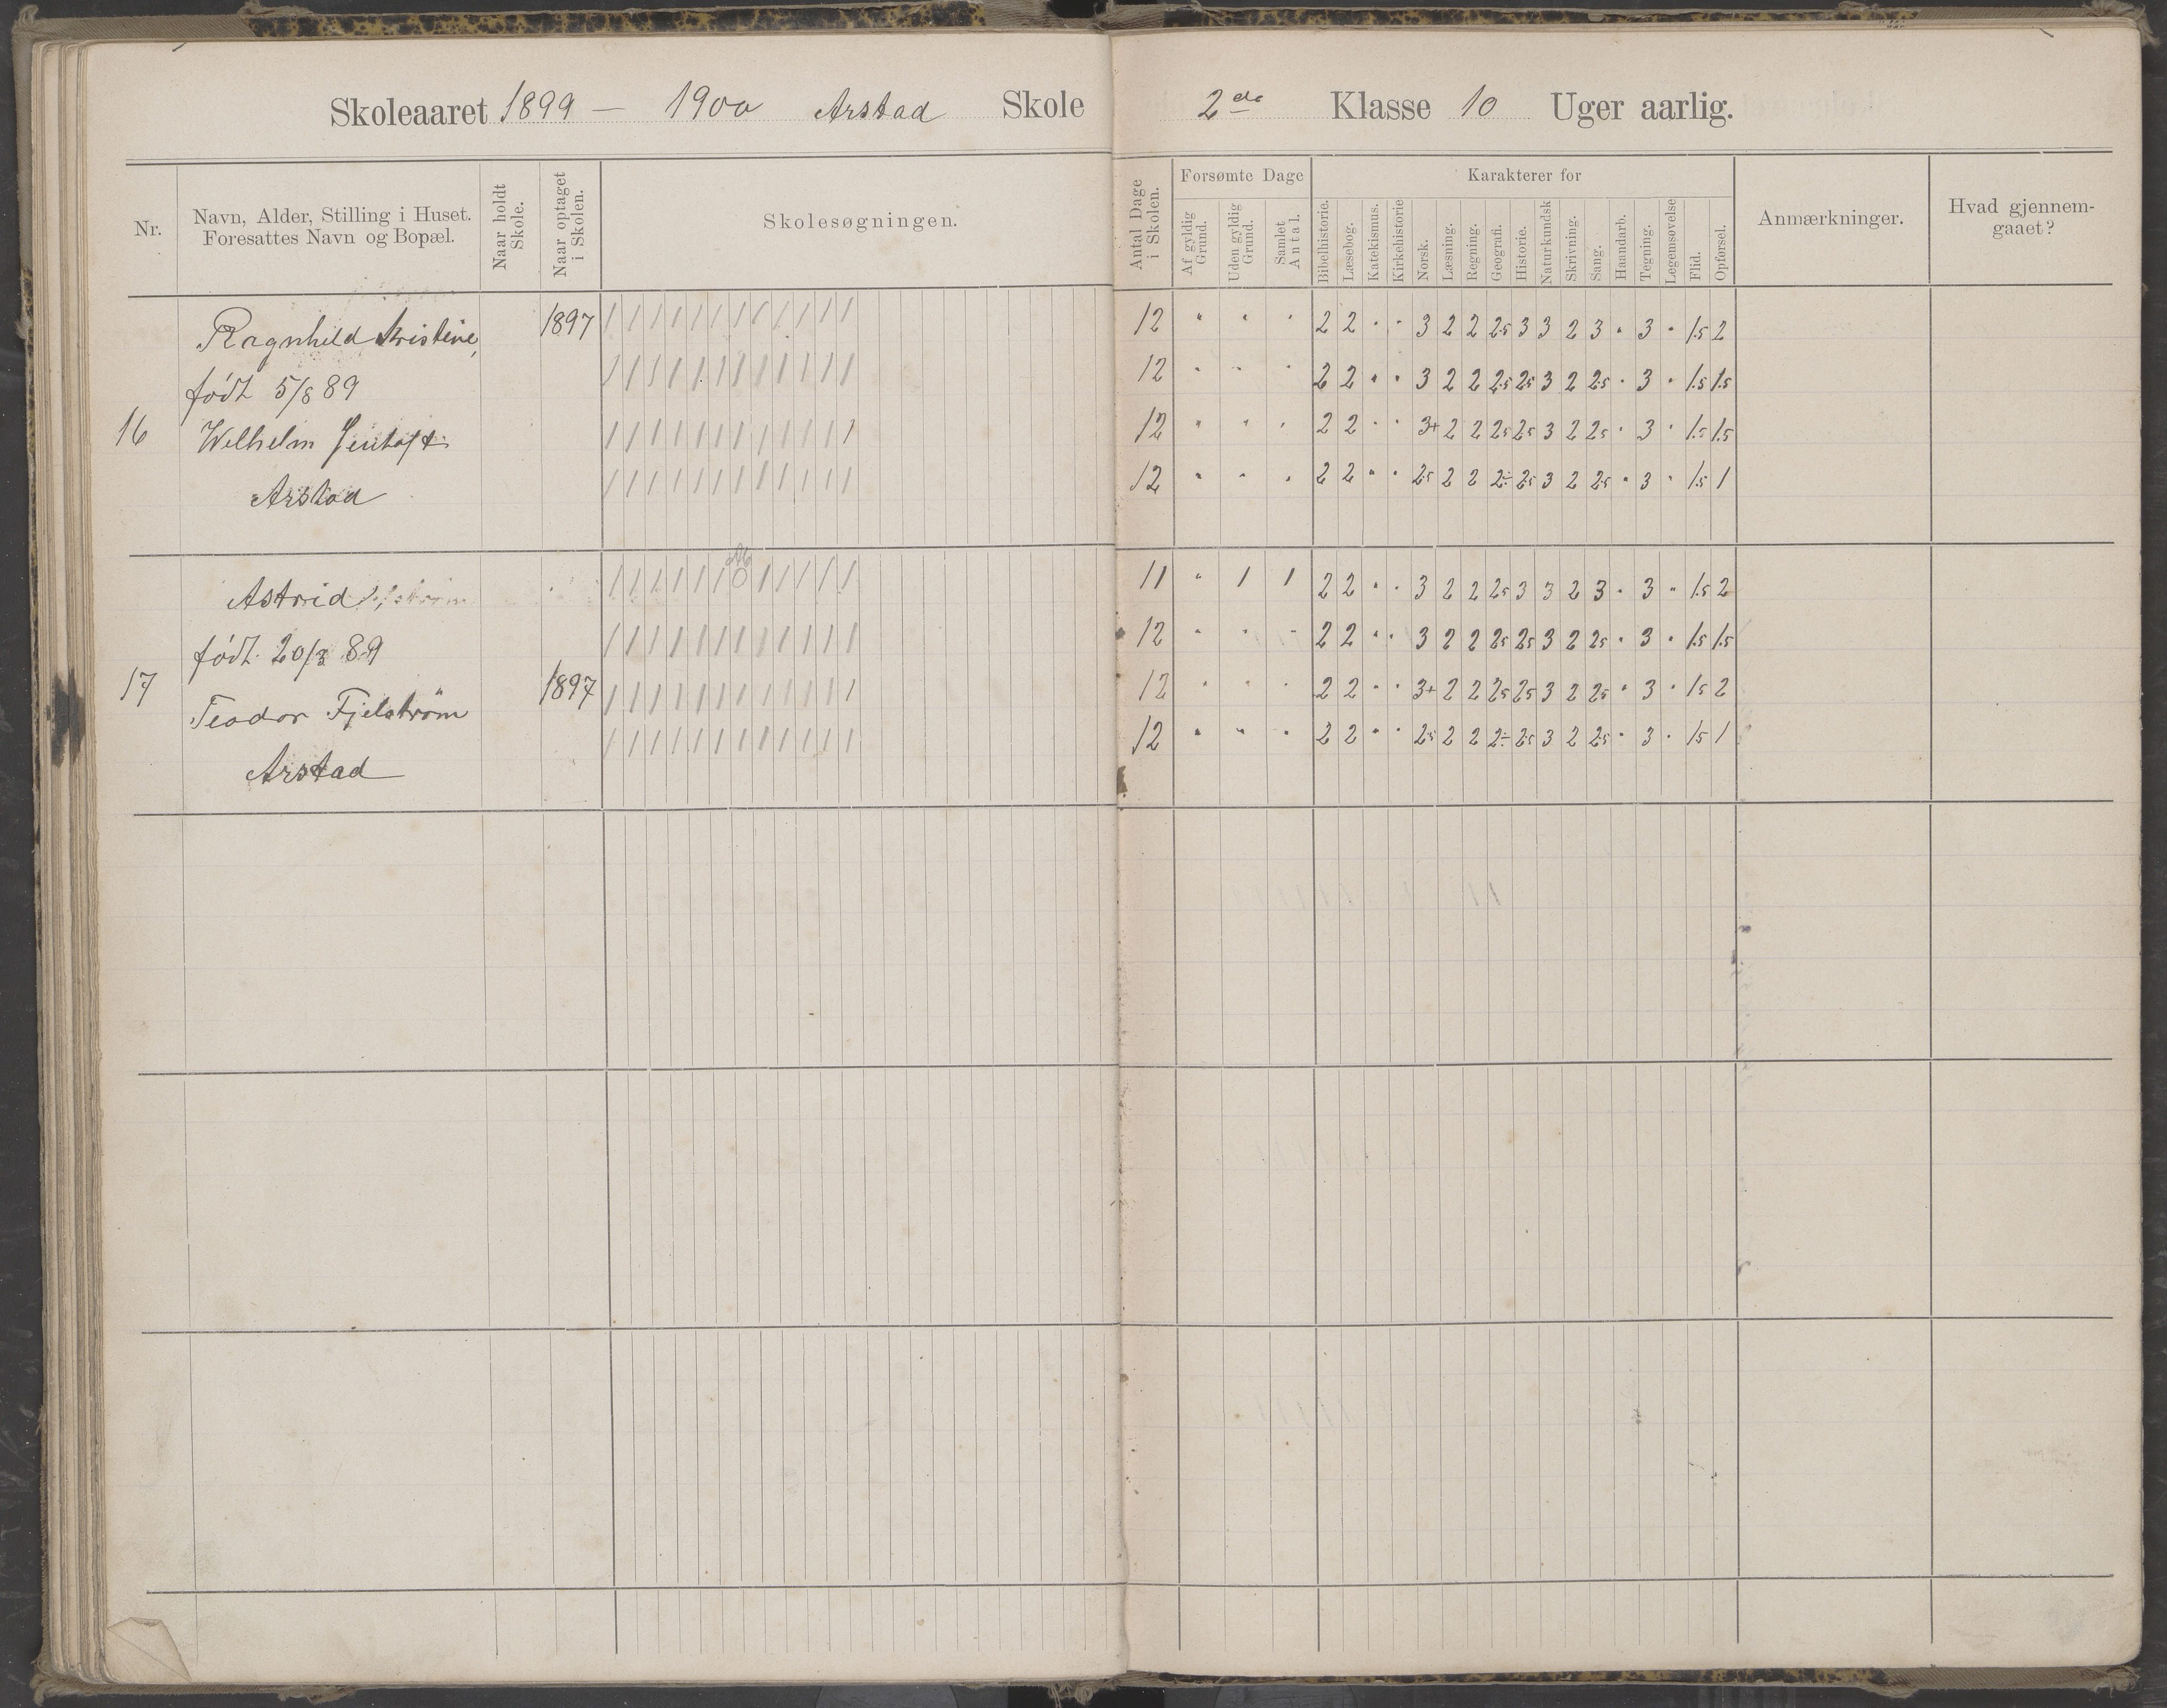 Skoleaaret 1899 — 1900 Arstad Skole 2de Klasse 10 Uger aarlig.
Nr.
Navn, Alder, Stilling i Huset.
Foresattes Navn og Bopæl.
Naar holdt
Skole.
Naar optaget
i Skolen.
Skolesøgningen.
Antal Dage
i Skolen.
Forsømte Dage
Af gyldig
Grund.
Uden gyldig
Grund.
Samlet
Antal.
Karakterer for
Bibelhistorie.
Læsebog.
Katekismus.
Kirkehistorie
Norsk.
Læsning.
Regning.
Geografi.
Historie.
Naturkundsk
Skrivning.
Sang.
Haandarb.
Tegning.
Legemsøvelse
Flid.
Opførsel.
Anmærkninger.
Hvad gjennem-
gaaet?
16
Ragnhild Kristine,
født 5/8 89
Wilhelm
Arstad
1897
1 1 1 1 1 1 1 1 1 1 1 1 12 " " " 2 2 " " 3 2 2 2.5 3 3 2 3 " 3 " 1.5 2
1 1 1 1 1 1 1 1 1 1 1 1 12 " " " 2 2 " " 3 2 2 2.5 2.5 3 2 2.5 " 3 " 1.5 1.5
1 1 1 1 1 1 1 1 1 1 1 1 12 " " " 2 2 " " 3+ 2 2 2.5 2.5 3 2 2.5 " 3 " 1.5 1.5
1 1 1 1 1 1 1 1 1 1 1 1 12 " " " 2 2 " " 2.5 2 2 2÷ 2.5 3 2 2.5 " 3 " 1.5 1
17
Astrid
født 20/3 89
Teodor Fjelström
Arstad
1897
1 1 1 1 1 1 0 1 1 1 1 1 11 " 1 1 2 2 " " 3 2 2 2.5 3 3 2 3 " 3 " 1.5 2
1 1 1 1 1 1 1 1 1 1 1 1 12 " " " 2 2 " " 3 2 2 2.5 2.5 3 2 2.5 " 3 " 1.5 1.5
1 1 1 1 1 1 1 1 1 1 1 1 12 " " " 2 2 " " 3+ 2 2 2.5 2.5 3 2 2.5 " 3 " 1.5 2
1 1 1 1 1 1 1 1 1 1 1 1 12 " " " 2 2 " " 2.5 2 2 2÷ 2.5 3 2 2.5 " 3 " 1.5 1